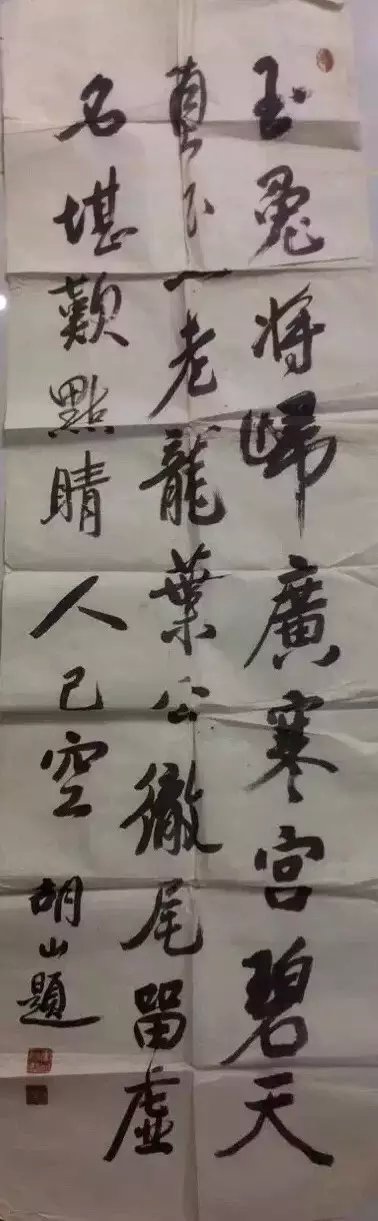 玉兔将歸廣寒宮碧天
直下一老龍葉公徹尾留虛
名堪歎點睛人已空
胡山題